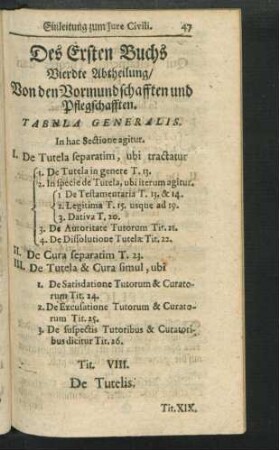 Einleitung zum Jure Civili. 47
Des Ersten Buchs
Vierdte Abtheilung/
Von den Vormundschafften und
Pflegschafften.
TABNLA GENERALIS.
In hac Sectione agitur.
I. De Tutela separatim, ubi tractatur
1. De Tutela in genere T. 13.
2. In specie de Tutela, ubi iterum agitur.
1 De Testamentaria T. 13, & 14.
2. Legitima T. 15. usque ad 19.
3. Dativa T. 20.
3. De Autoritate Tutorum Tit. 21.
4. De Dissolutione Tutelæ Tit. 22.
II. De Cura separatim T. 23.
III. De Tutela & Cura simul, ubi
1. De Satisdatione Tutorum & Curato-
rum Tit. 24.
2. De Excusatione Tutorum & Curato-
rum Tit. 25.
3. De suspectis Tutoribus & Curatori-
bus dicitur Tit. 26.
Tit. VIII.
De Tutelis.
Tit. XIX.